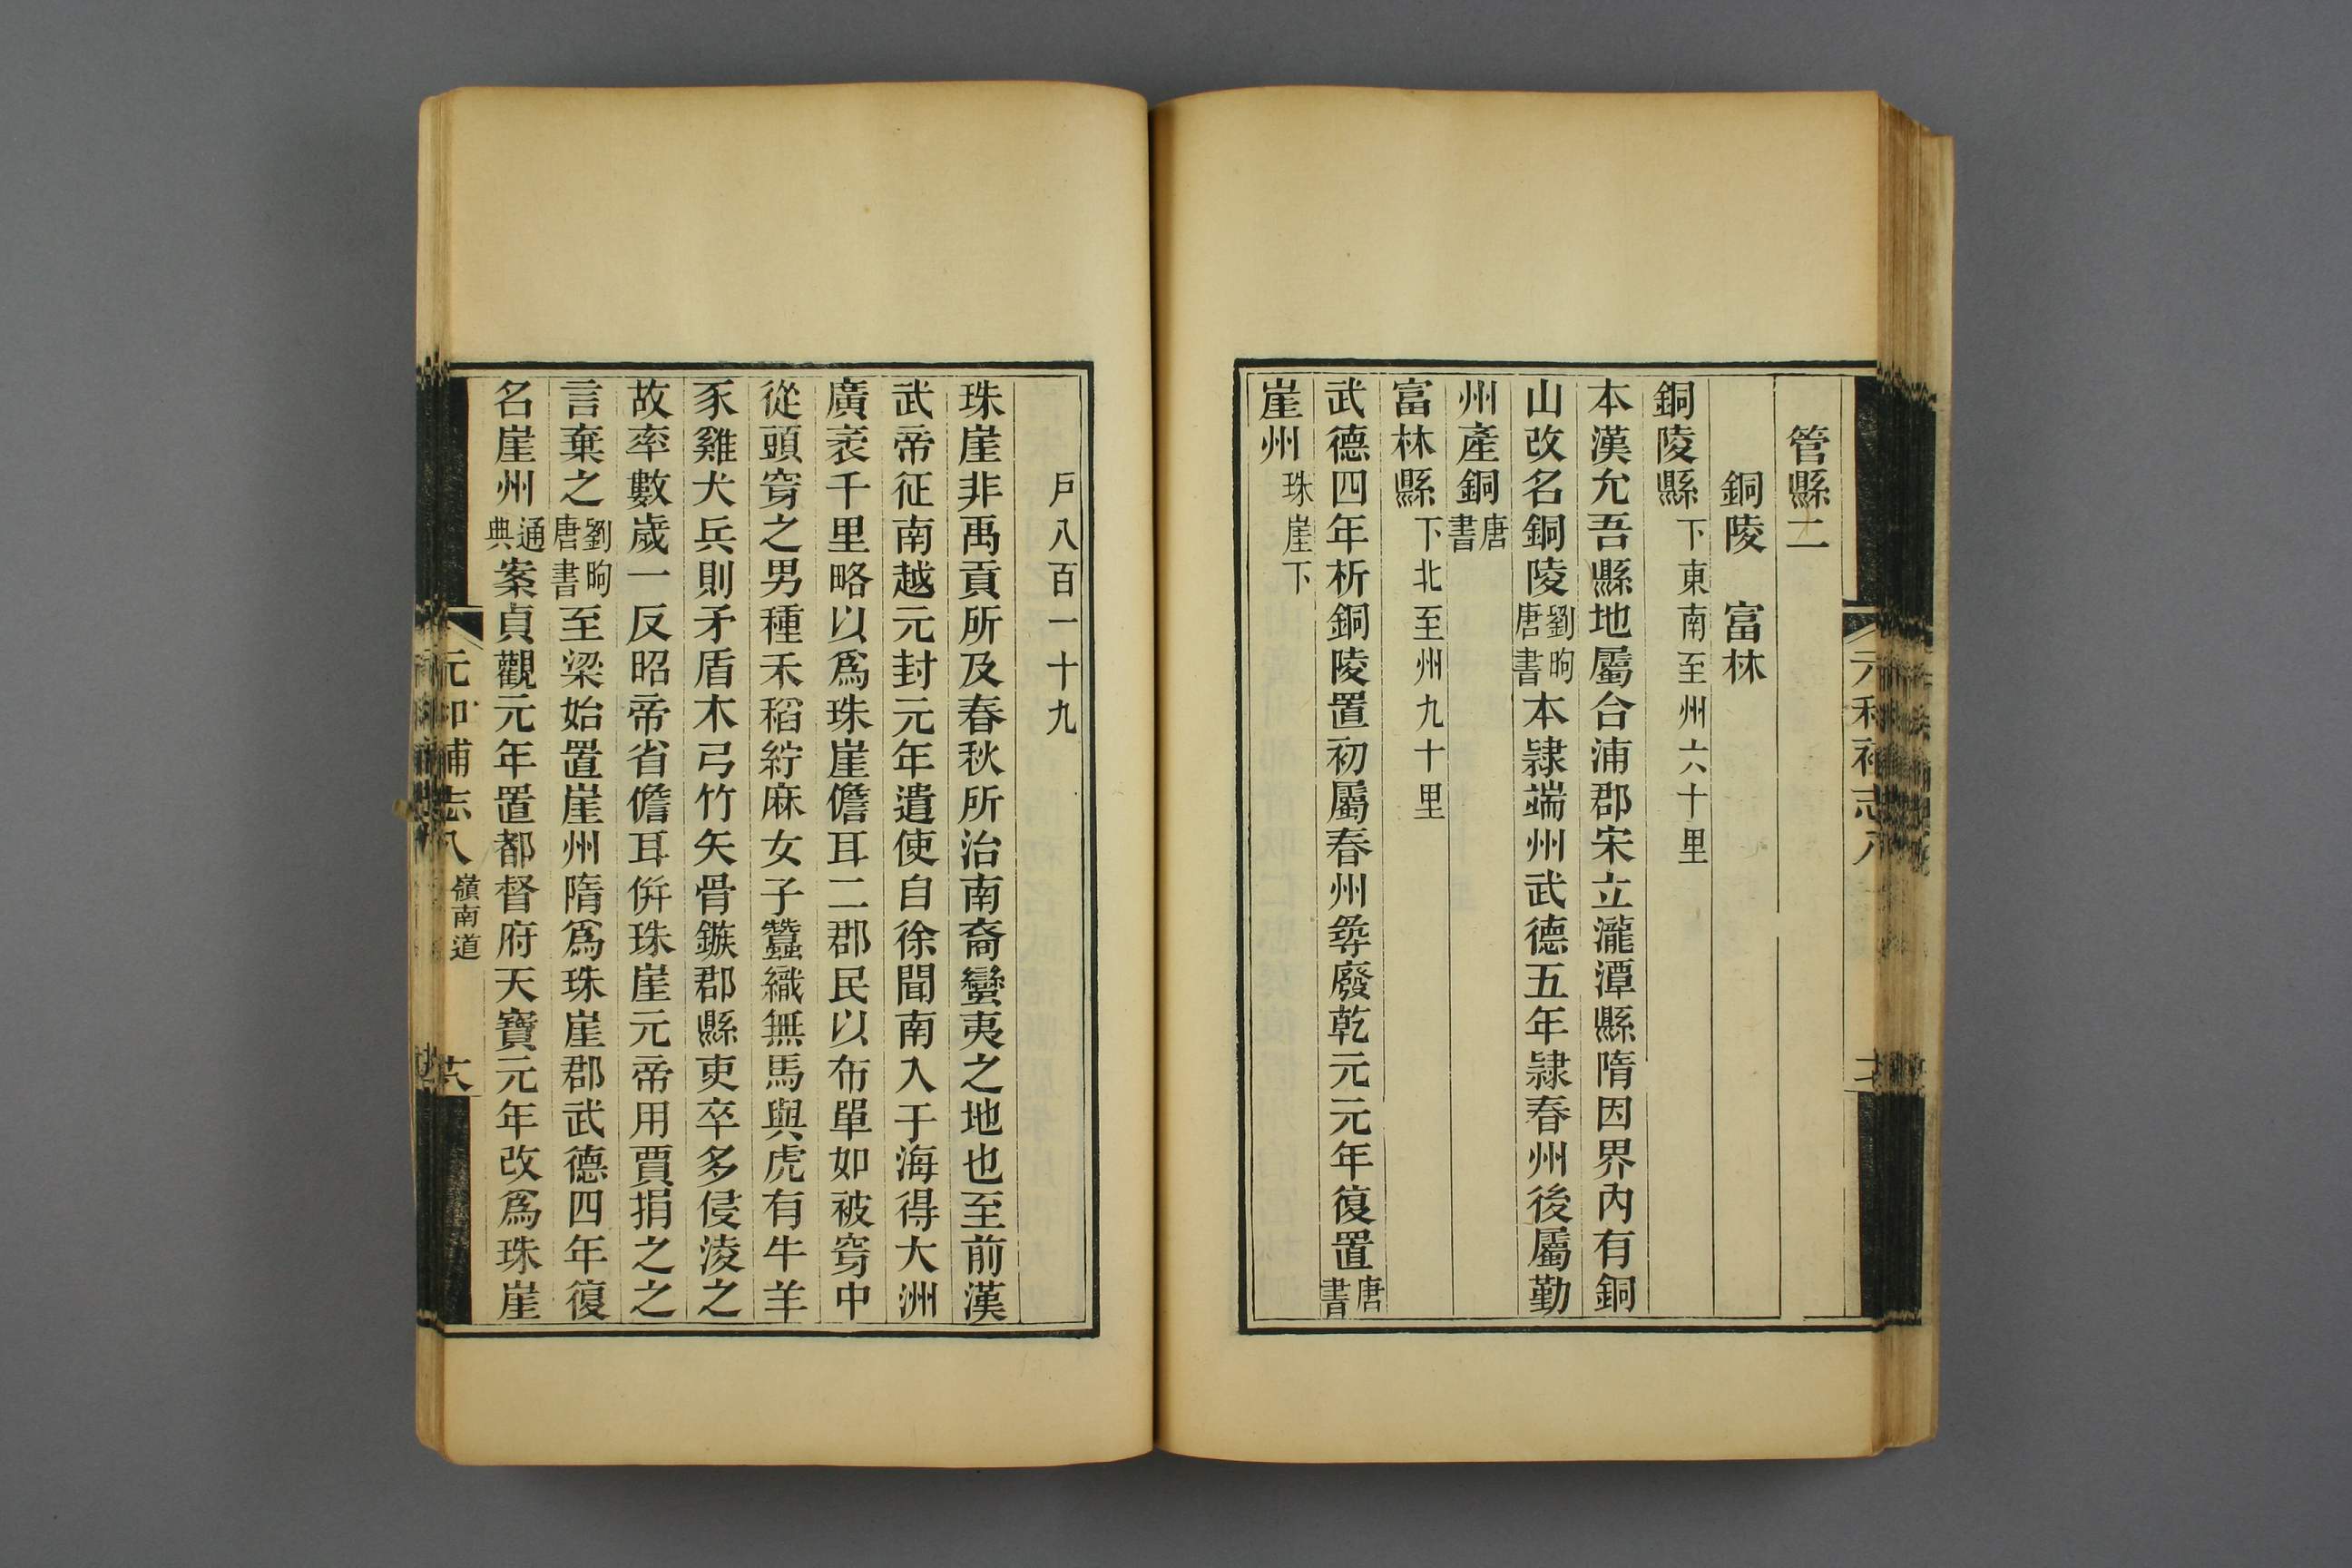 管縣二
銅陵　富林
銅陵縣下東南至州六十里
本漢允吾縣地屬合浦郡宋立瀧潭縣隋因界內有銅
山改名銅陵劉昫唐書本隷端州武德五年隷春州後屬勤
州產銅唐書
富林縣下北至州九十里
武德四年析銅陵置初屬春州尋廢乾元元年復置唐書
崖州珠崖下
戶八百一十九
珠崖非禹貢所及春秋所治南裔蠻夷之地也至前漢
武帝征南越元封元年遣使自徐聞南入于海得大洲
廣袤千里略以爲珠崖儋耳二郡民以布單如被穿中
從頭穿之男種禾稻紵麻女子蠶織無馬與虎有牛羊
豕雞犬兵則矛盾木弓竹矢骨鏃郡縣吏卒多侵淩之
故率數歲一反昭帝省儋耳倂珠崖元帝用賈捐之之
言棄之劉昫唐書至梁始置崖州隋爲珠崖郡武德四年復
名崖州通典案貞觀元年置都督府天寶元年改爲珠崖
元和補志八　嶺南道